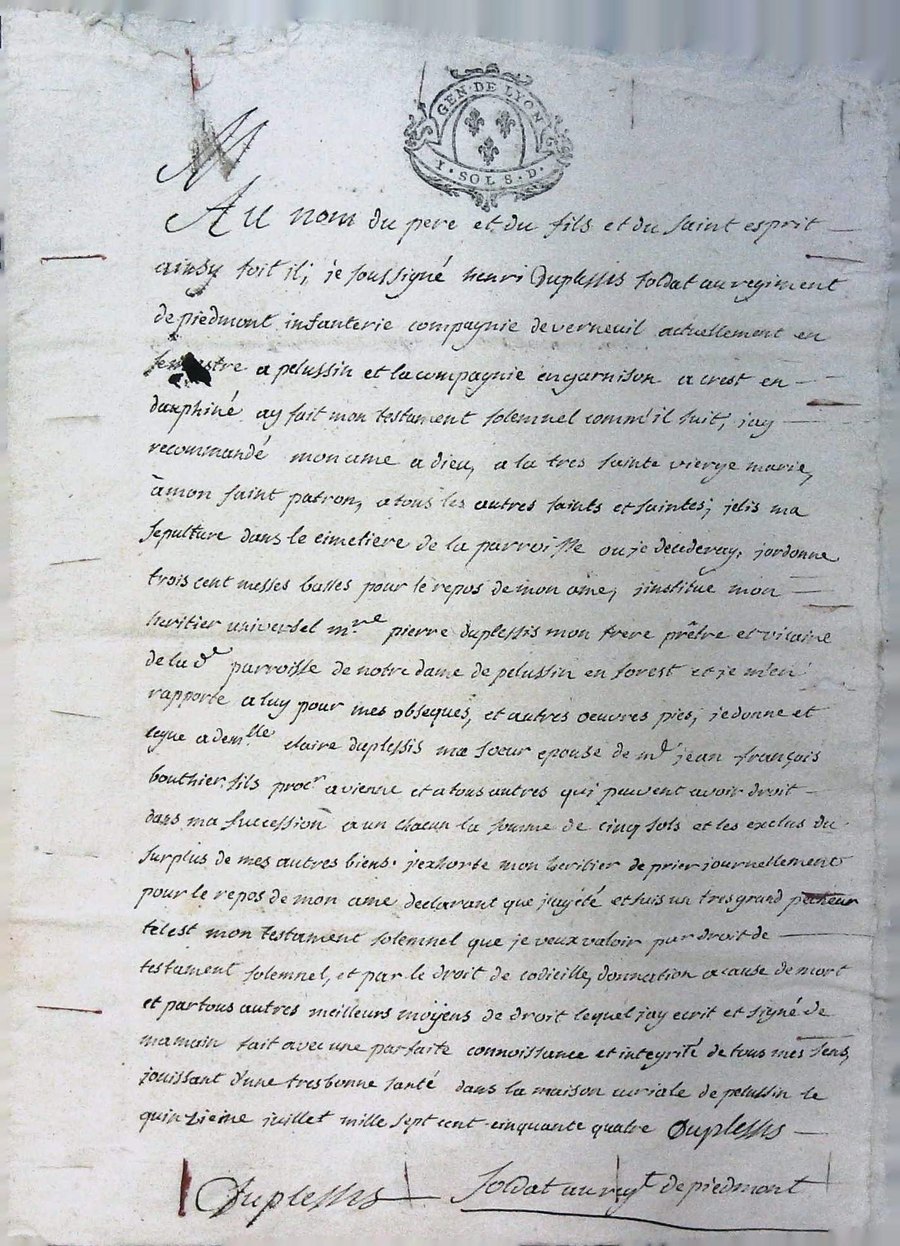 GEN·DE LYON
I·SOLS·D·
Au nom du pere et du fils et du saint esprit
ainsy soit il; je soussigné henri Duplessis soldat au regiment
de piedmont infanterie compagnie de verneuil actuellement en
semestre a pelussin et la compagnie en garnison a crest en
dauphiné ay fait mon testament solemnel comm'il suit, jay
recommandé mon ame a dieu, a la tres sainte vierge marie,
à mon saint patron, a tous les autres saints et saintes; jelis ma
sepulture dans le cimetiere de la parroisse ou je decederay, jordonne
trois cent messes basses pour le repos de mon ame, jinstitue mon
heritier universel mre pierre duplessis mon frere prêtre et vicaire
de lad.e parroisse de notre dame de pelussin en forest et je m'en
rapporte a luy pour mes obseques, et autres oeuvres pies, je donne et
legue a demlle claire duplessis ma soeur epouse de md jean françois
bouthier fils procr a vienne et a tous autres qui peuvent avoir droit
dans ma succession a un chacun la somme de cinq sols et les exclus du
surplus de mes autres biens. jexhorte mon heritier de prier journellement
pour le repos de mon ame declarant que jay été et suis un tres grand pecheur
tel est mon testament solemnel que je veux valoir par droit de
testament solemnel, et par le droit de codicille, donnation a cause de mort
et par tous autres meilleurs moÿens de droit lequel jay ecrit et signé de
ma main fait avec une parfaite connoissance et integrité de tous mes sens,
jouissant d'une tres bonne santé dans la maison curiale de pelussin le
quinzieme juillet mille sept cent cinquante quatre Duplessis
Duplessis soldat au regt de piedmont